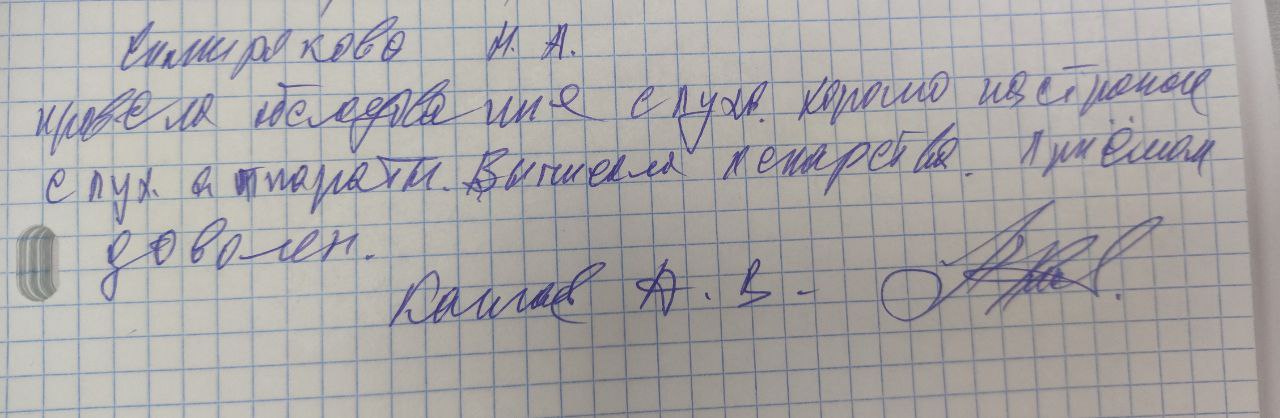 Н. А.
провела обследование слуха. хорошо настроила
слух. аппараты. Выписала лекарства. Приёмом
доволен.
А. В.